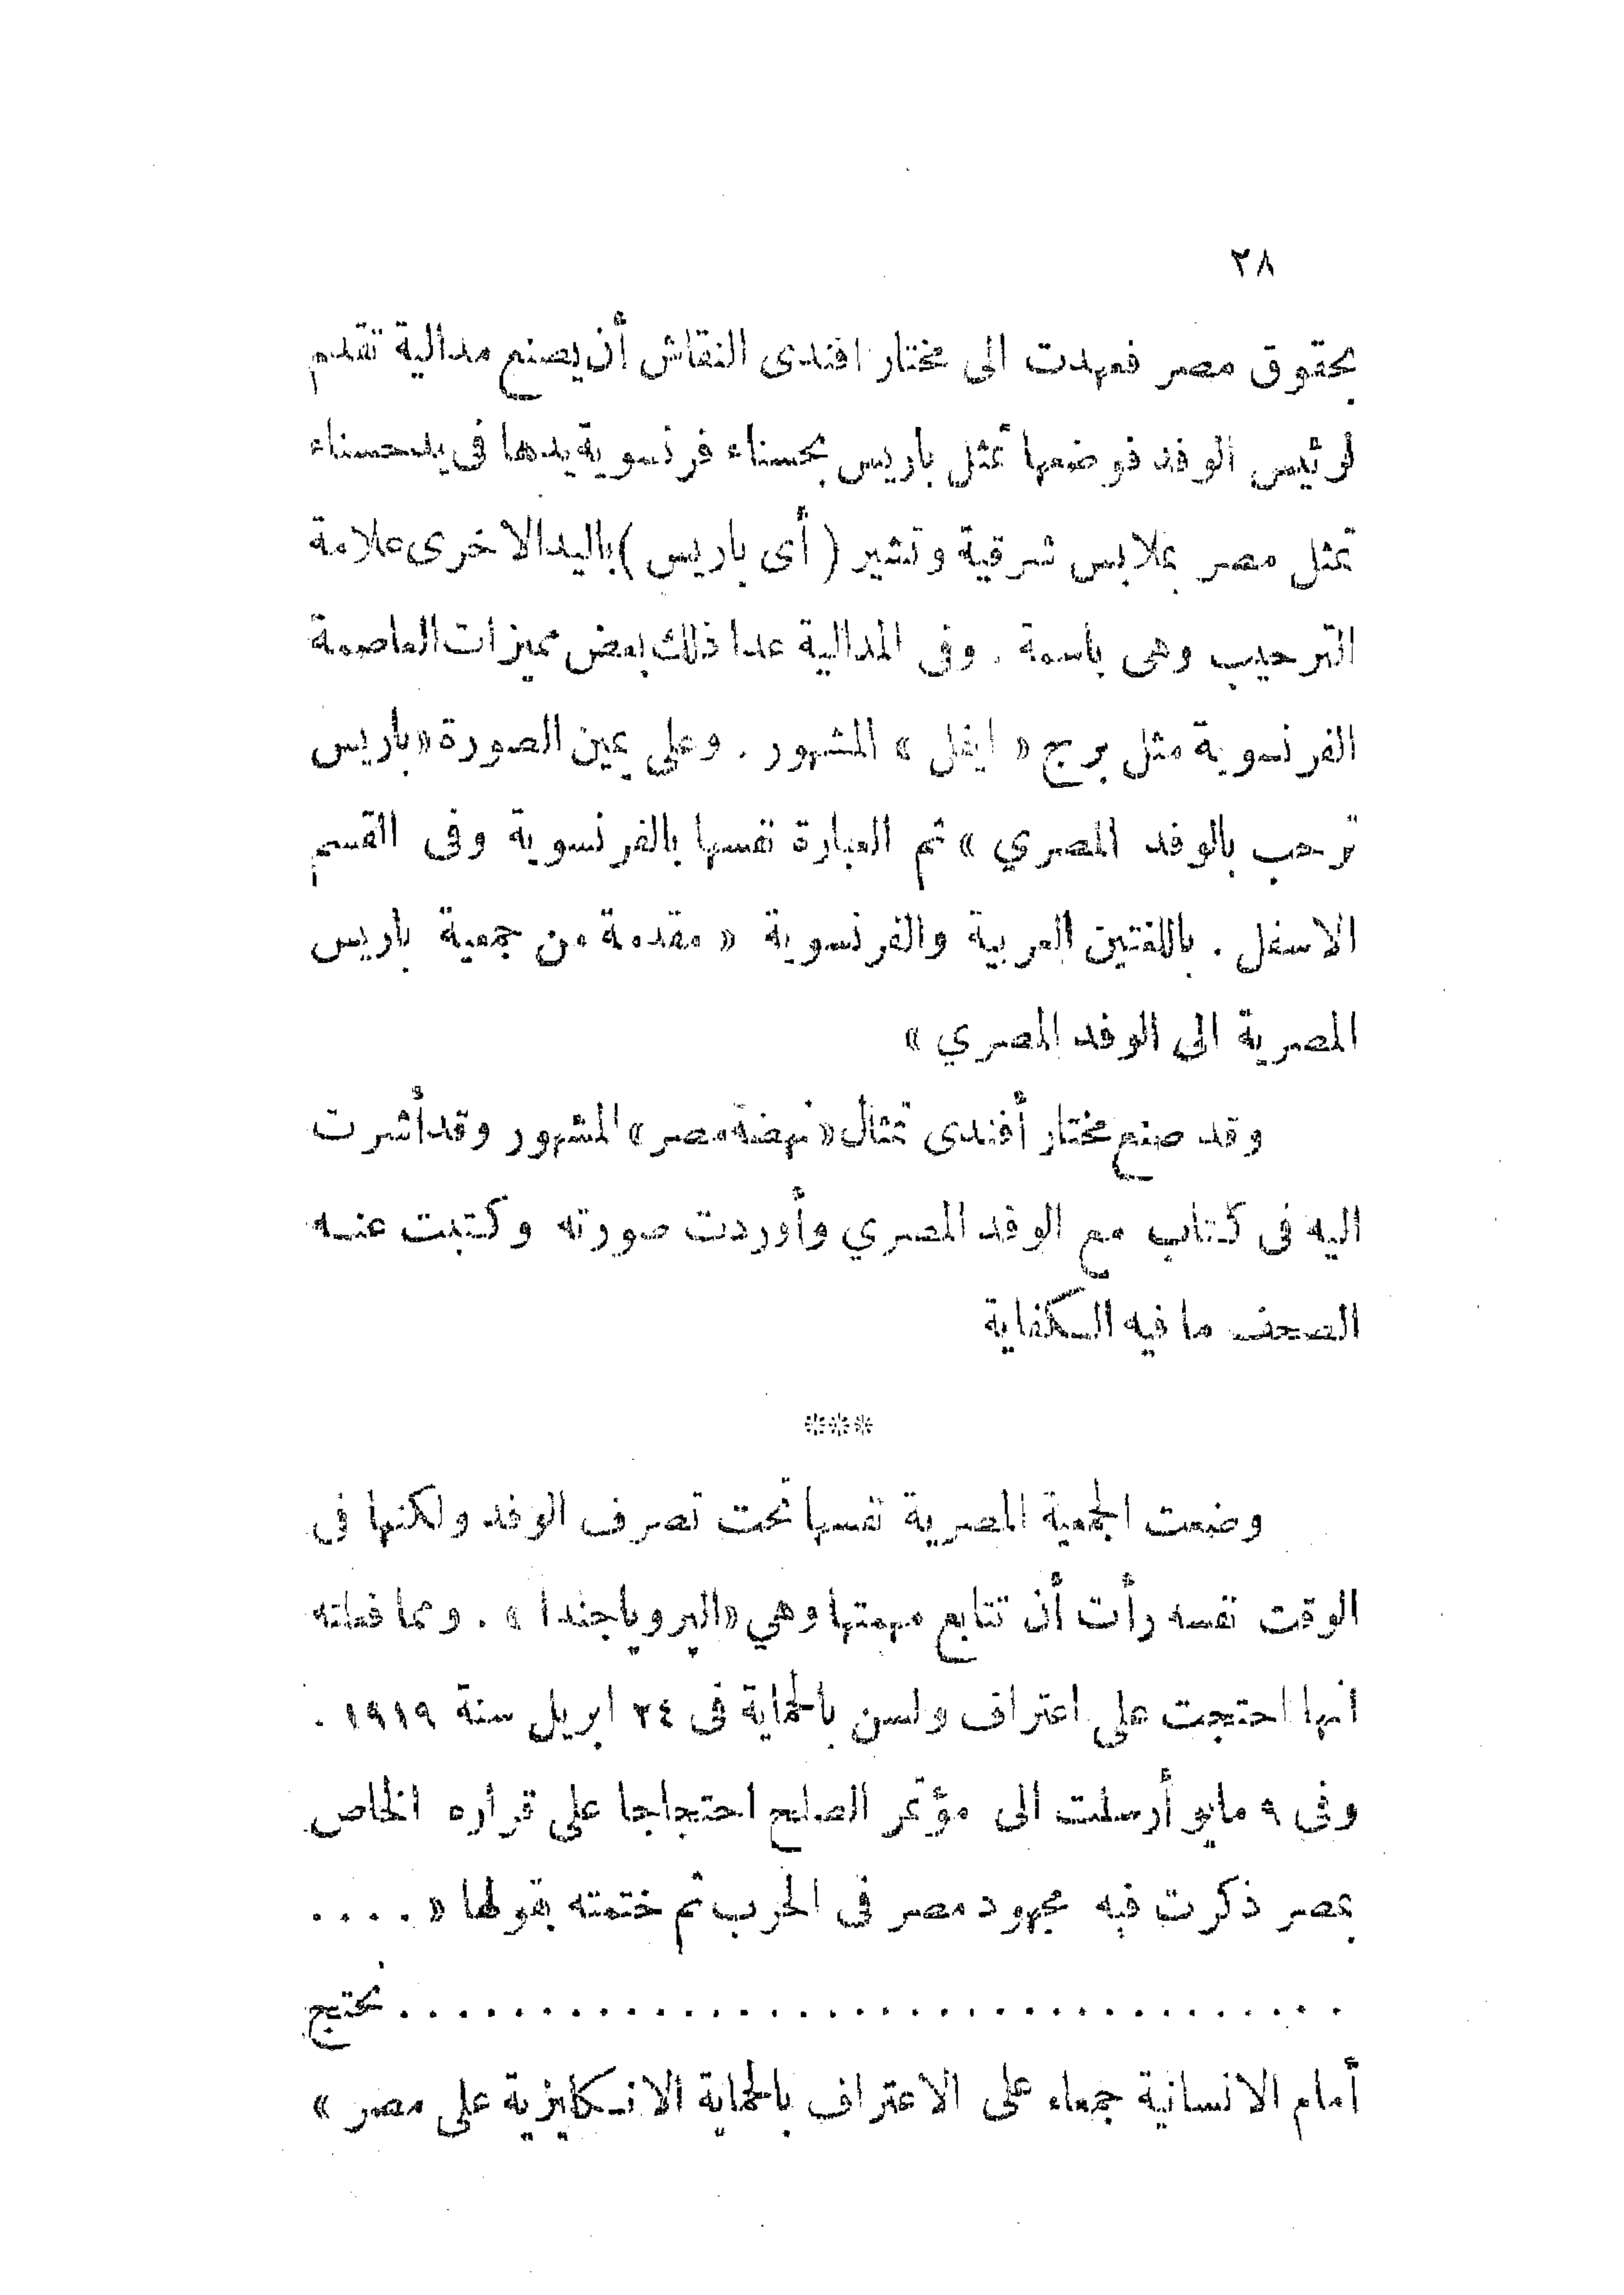 ٢٨
بحقوق مصر فعهدت الى مختار افندى النقاش أن يصنع مدالية تقدم
لرئيس الوفد فوضعها تمثل باريس بحسناء فرنسوية يدها فى يد حسناء
تمثل مصر بملابس شرقية وتشير ( أى باريس ) باليد الاخرى علامة
الترحيب وهى باسمة . وفى المدالية عدا ذلك بعض مميزات العاصمة
الفرنسوية مثل برج « ايفل » المشهور . وعلى يمين الصورة « باريس
ترحب بالوفد المصري » ثم العبارة نفسها بالفرنسوية وفى القسم
الاسفل . باللغتين العربية والفرنسوية « مقدمة من جمعية باريس
المصرية الى الوفد المصري »
وقد صنع مختار أفندى تمثال « نهضة مصر » المشهور وقد أشرت
اليه فى كتاب مع الوفد المصري وأوردت صورته وكتبت عنه
الصحف ما فيه الكفاية
***
وضعت الجمعية المصرية نفسها تحت تصرف الوفد ولكنها فى
الوقت نفسه رأت أن تتابع مهمتها وهي « البروباجندا » . ومما فعلته
انها احتجت على اعتراف ولسن بالحماية فى ٢٤ ابريل سنة ١٩١٩ .
وفى ٩ مايو أرسلت الى مؤتمر الصلح احتجاجا على قراره الخاص
بمصر ذكرت فيه مجهود مصر فى الحرب ثم ختمته بقولها « . . . .
. . . . . . . . . . . . . . . . . . . . . . . . . . . . . . . . . . نحتج
أمام الانسانية جمعاء على الاعتراف بالحماية الانكليزية على مصر »